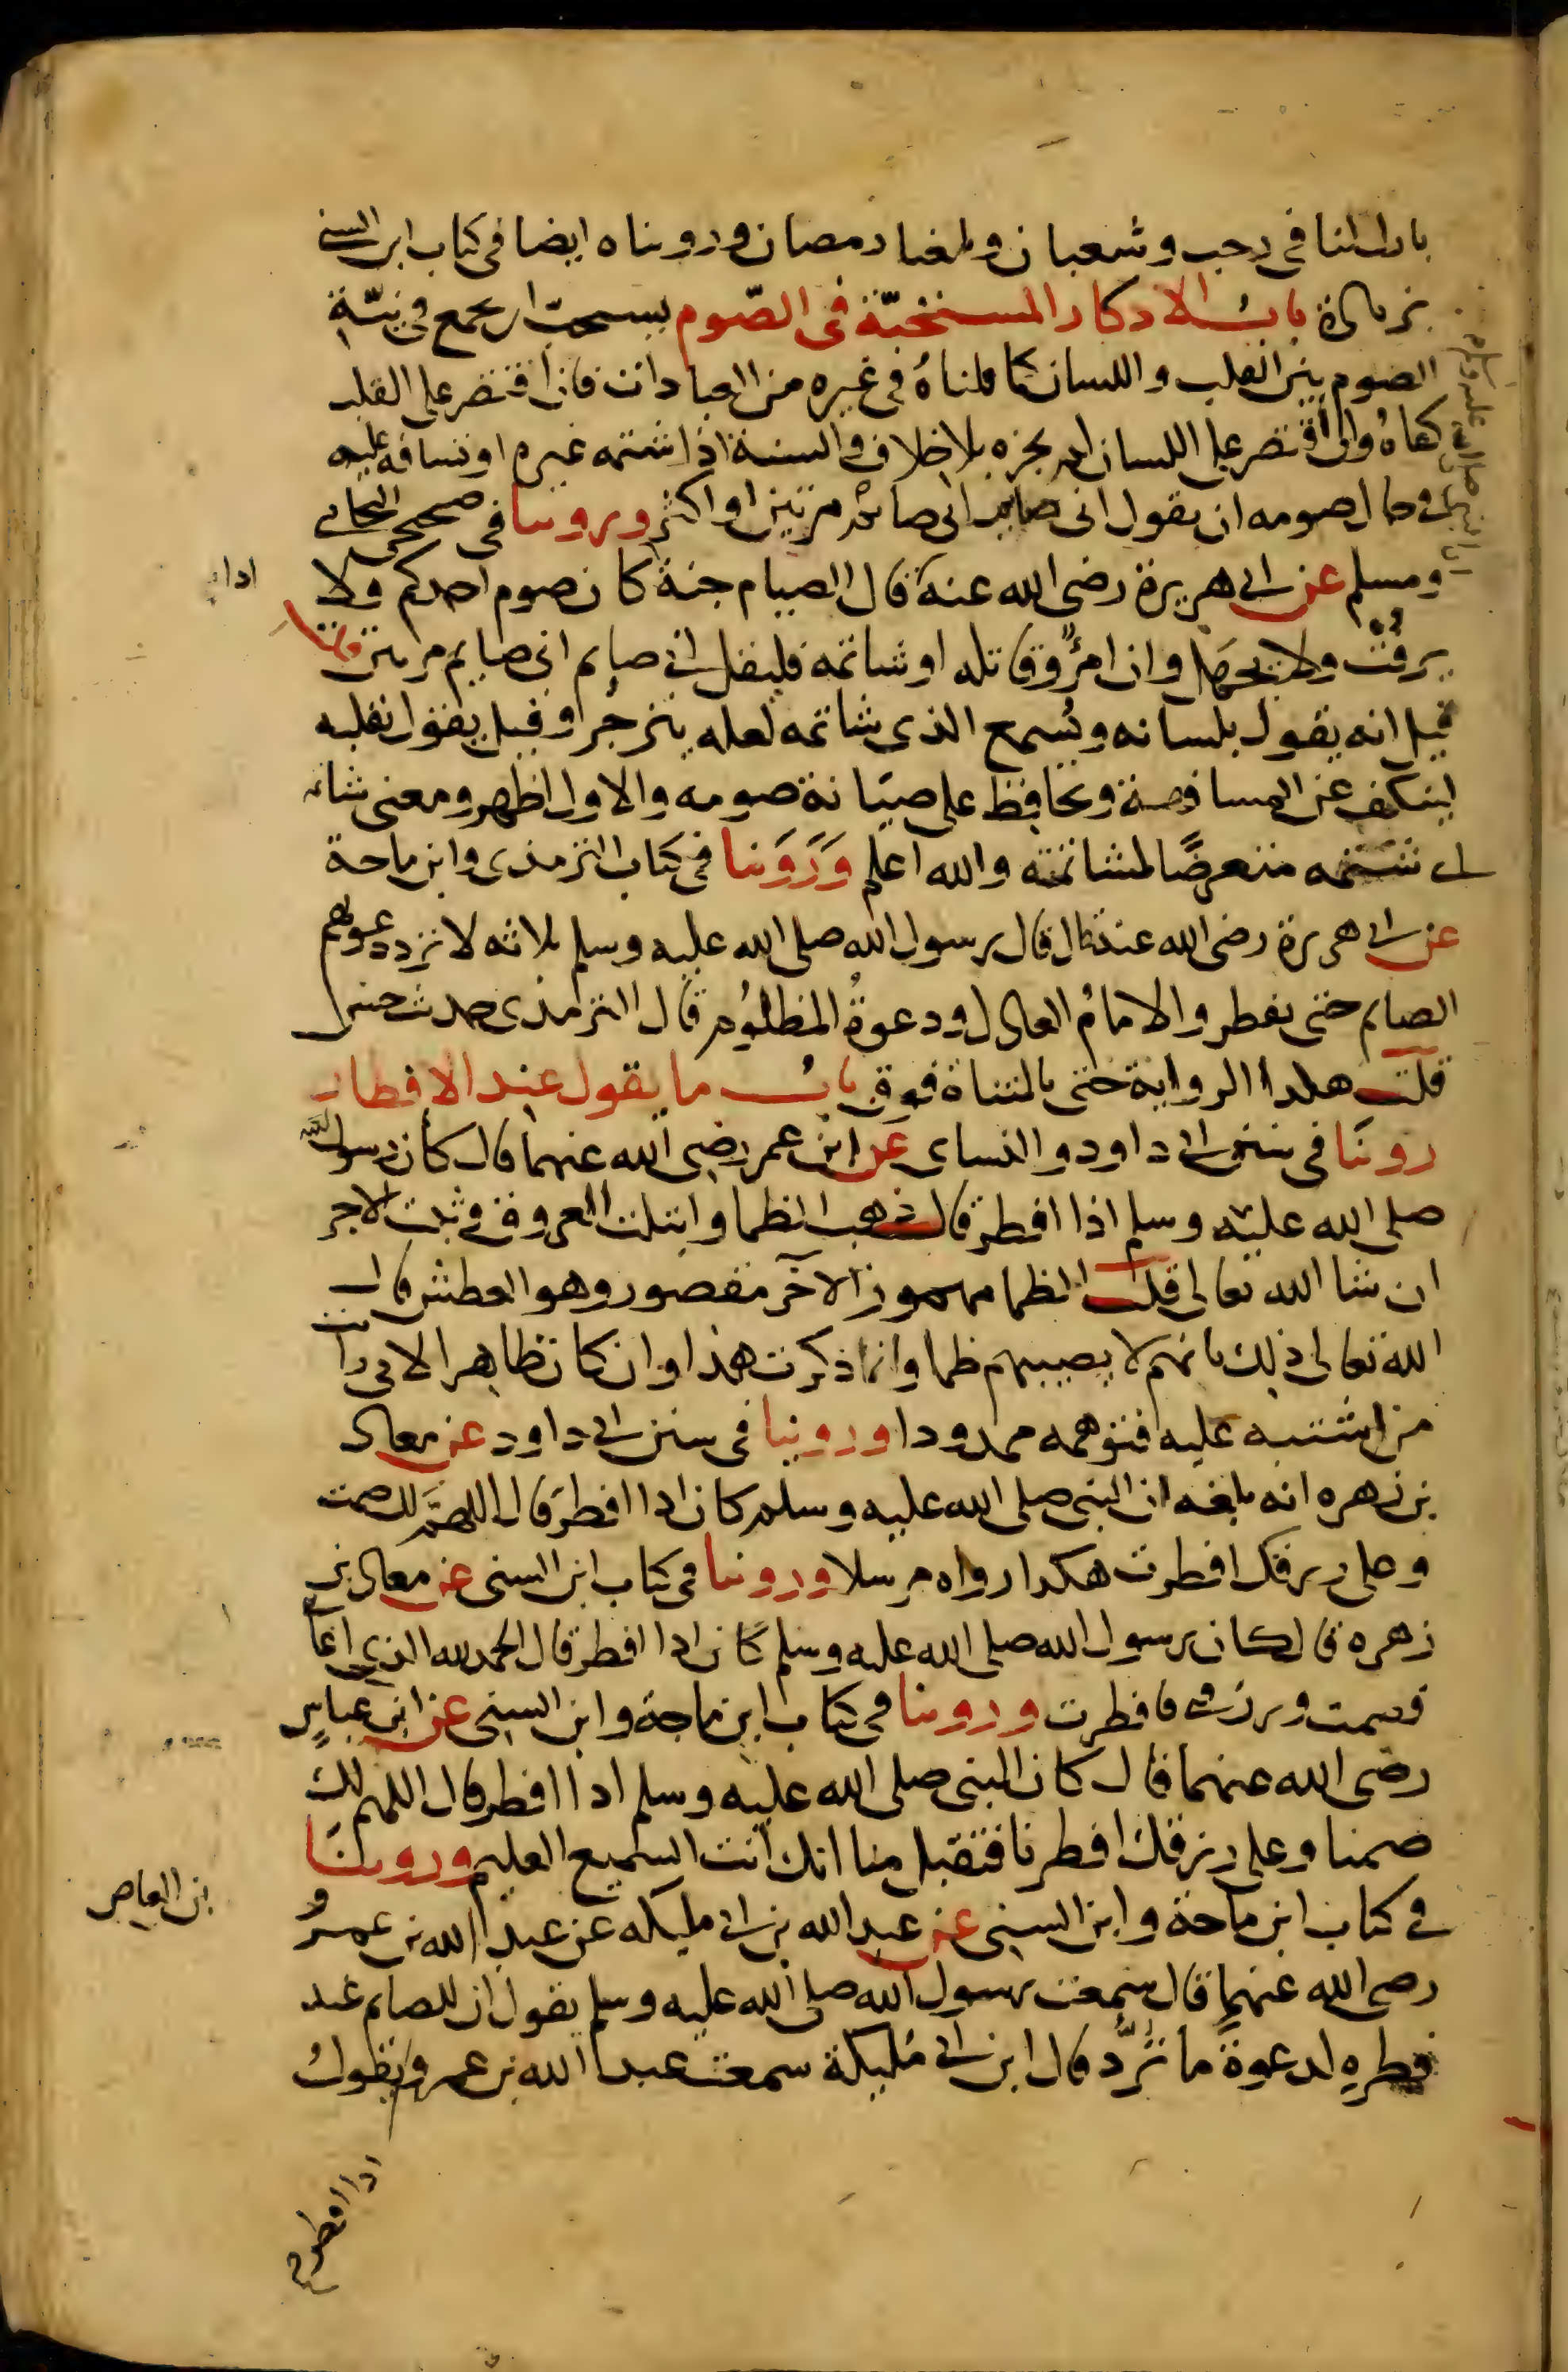 بارك لنا في رجب وشعبان وبلغنا رمضان وروىناه ايضا في كتاب ابن السني
بزيادة باب الاذكار المستحبة في الصوم يستحب ان يجمع في نية
الصوم بين القلب واللسان كما قلناه في غيره من العبادات فان اقتصر على القلب
كفاه وان اقتصر على اللسان لم يجزه بلا خلاف والسنة اذا شتمه غيره او تسافه عليه
في حال صومه ان يقول اني صايم اني صائم مرتين او اكثر وروينا في صحيحي البخاري
ومسلم عن ابي هريرة رضي الله عنه قال الصيام جنة كان صوم احدكم فلا
يرفث ولا يجهل وان امرؤ قاتله او شاتمه فليقل اني صايم اني صايم مرتين قلت
قيل انه يقول بلسانه ويسمع الذي شاتمه لعله ينزجر وقيل يقول بقلبه
لينكف عن المسافهة ويحافظ على صيانة صومه والاول اظهر ومعنى شاتمه
اى شتمه متعرضا لمشاتمته والله اعلم وروينا في كتاب الترمذي وابن ماجة
عن ابي هريرة رضي الله عنه قال قال رسول الله صلى الله عليه وسلم ثلاثه لا ترد دعوتهم
الصايم حتى يفطر والامام العادل ودعوة المظلوم قال الترمذي حديث حسن
قلت هكذا الرواية حتى بالمثناة فوق باب ما يقول عند الافطار
روينا في سنن ابي داود والنساى عن ابن عمر رضي الله عنهما قال كان رسول الله
صلى الله عليه وسلم اذا افطر قال ذهب الظما وابتلت العروق وثبت الاجر
ان شا الله تعالى قلت الظما مهموز الآخر مقصور وهو العطش قال
الله تعالى ذلك بانهم لا يصيبهم ظما وانما ذكرت هذا وان كان ظاهرا لاني رايت
من اشتبه عليه فتوهمه ممدودا وروينا في سنن ابي داود عن معاذ
بن زهره انه بلغه ان النبي صلى الله عليه وسلم كان اذا افطر قال اللهم لك صمت
وعلى رزقك افطرت هكذا رواه مرسلا وروينا في كتاب ابن السني عن معاذ بن
زهره قال كان رسول الله صلى الله عليه وسلم كان اذا افطر قال الحمد لله الذي اعا
فصمت ورزقني فافطرت وروينا في كتاب ابن ماجة وابن السني عن ابن عباس
رضي الله عنهما قال كان النبي صلى الله عليه وسلم اذا افطر قال اللهم لك
صمنا وعلى رزقك افطرنا فتقبل منا انك انت السميع العليم وروينا
في كتاب ابن ماجة وابن السني عن عبد الله بن ابي مليكه عن عبد الله بن عمرو
رضي الله عنهما قال سمعت رسول الله صلى الله عليه وسلم يقول ان للصايم عند
فطره لدعوة ما ترد قال ابن ابي مليكة سمعت عبد الله بن عمرو يقول
اذا
بن العاص
اذا افطر